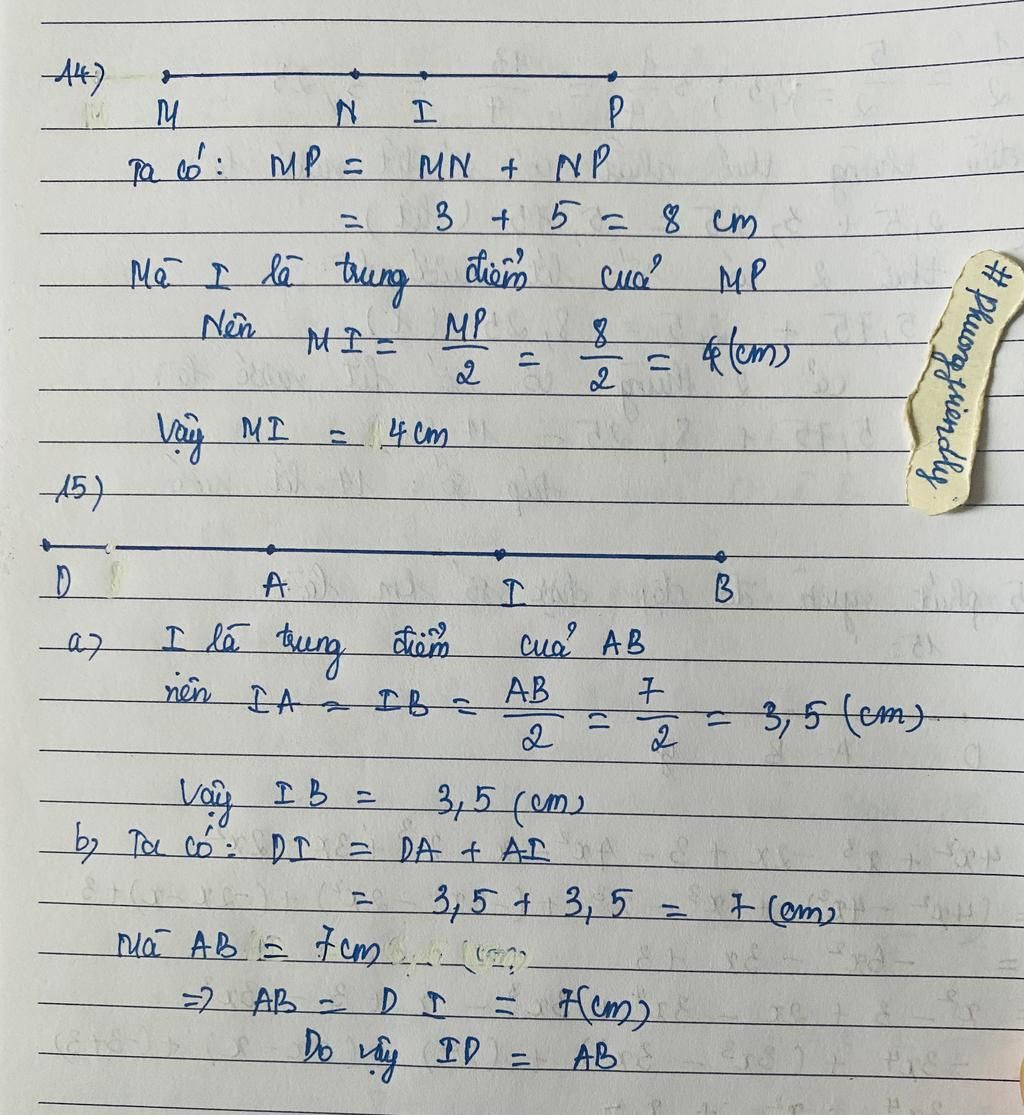 14)
M N I P
Ta có: MP = MN + NP
= 3 + 5 = 8 cm
Mà I là trung điểm của MP
Nên MI = MP/2 = 8/2 = 4 (cm)
Vậy MI = 4 cm
#phuongfriendly
15)
D A I B
a) I là trung điểm của AB
nên IA = IB = AB/2 = 7/2 = 3,5 (cm)
Vậy IB = 3,5 (cm)
b) Ta có: DI = DA + AI
= 3,5 + 3,5 = 7 (cm)
Mà AB = 7cm
=> AB = DI = 7(cm)
Do vậy ID = AB